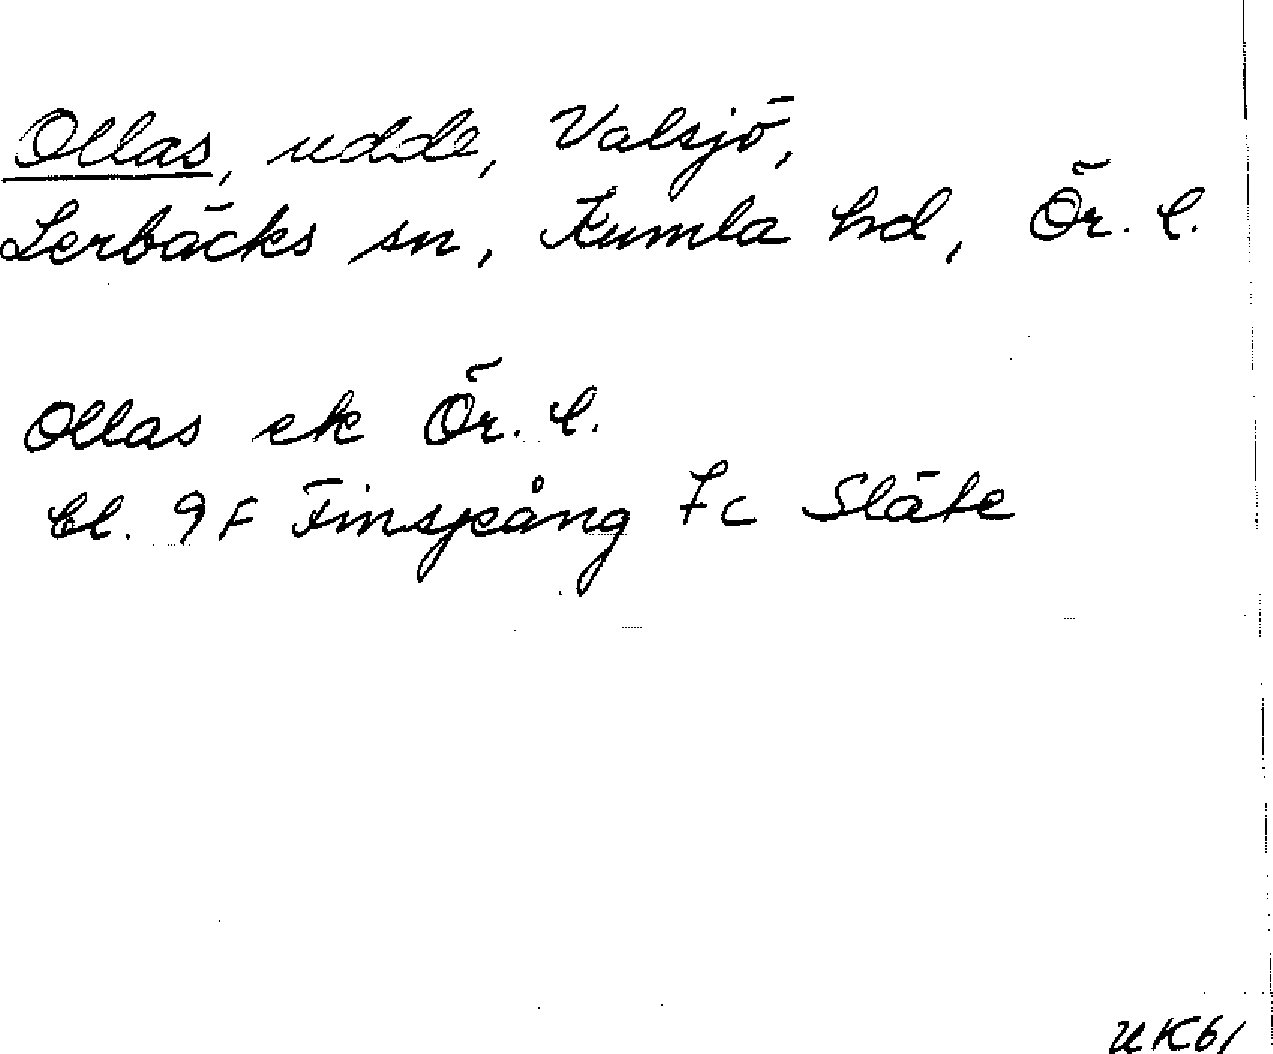 Ollas, udde, Valsjö,
Lerbäcks sn, Kumla hd, Ör. l.
Ollas ek Ör. l.
bl. 9F Finspång 7c Släte
UK61